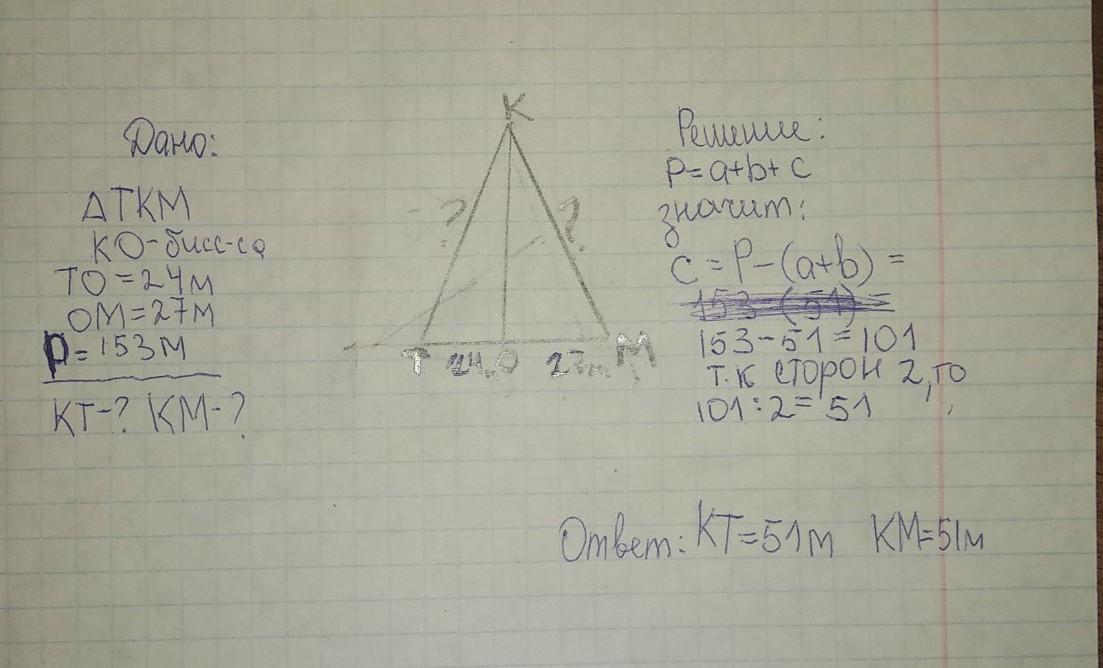 Дано:
ΔTKM
KO-бисс-са
TO=24м
OM=27м
P=153м
KT-? KM-?
K
? ?
T 24м O 27м M
Решение:
P=a+b+c
значит:
C=P-(a+b)=
153-(51)=
153-51=101
т.к сторон 2, то
101:2=51
Ответ: KT=51м KM=51м